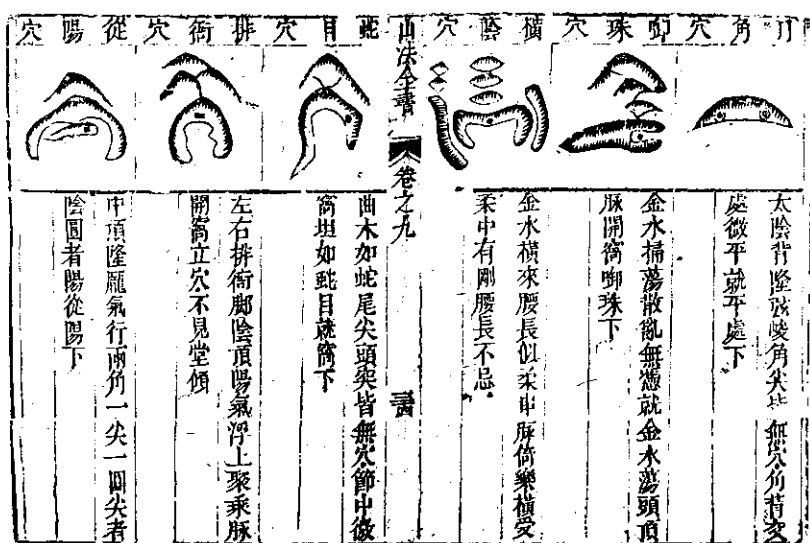 月角穴
太陰背隆弦崚角尖皆無穴角背交
處微平就平處下
啣珠穴
金水掃蕩散亂無憑就金水蕩頭頂
脉開窩啣珠下
橫陰穴
金水橫來腰長似柔中脉倚樂橫受
柔中有剛腰長不忌
山法全書 卷之九
蛇目穴
曲木如蛇尾尖頭突皆無穴節中微
窩坦如蛇目就窩下
排衙穴
左右排衙脚陰頂陽氣浮上聚乘脉
開窩立穴不見堂傾
從陽穴
中頂隆巃氣行兩角一尖一圓尖者
陰圓者陽從陽下